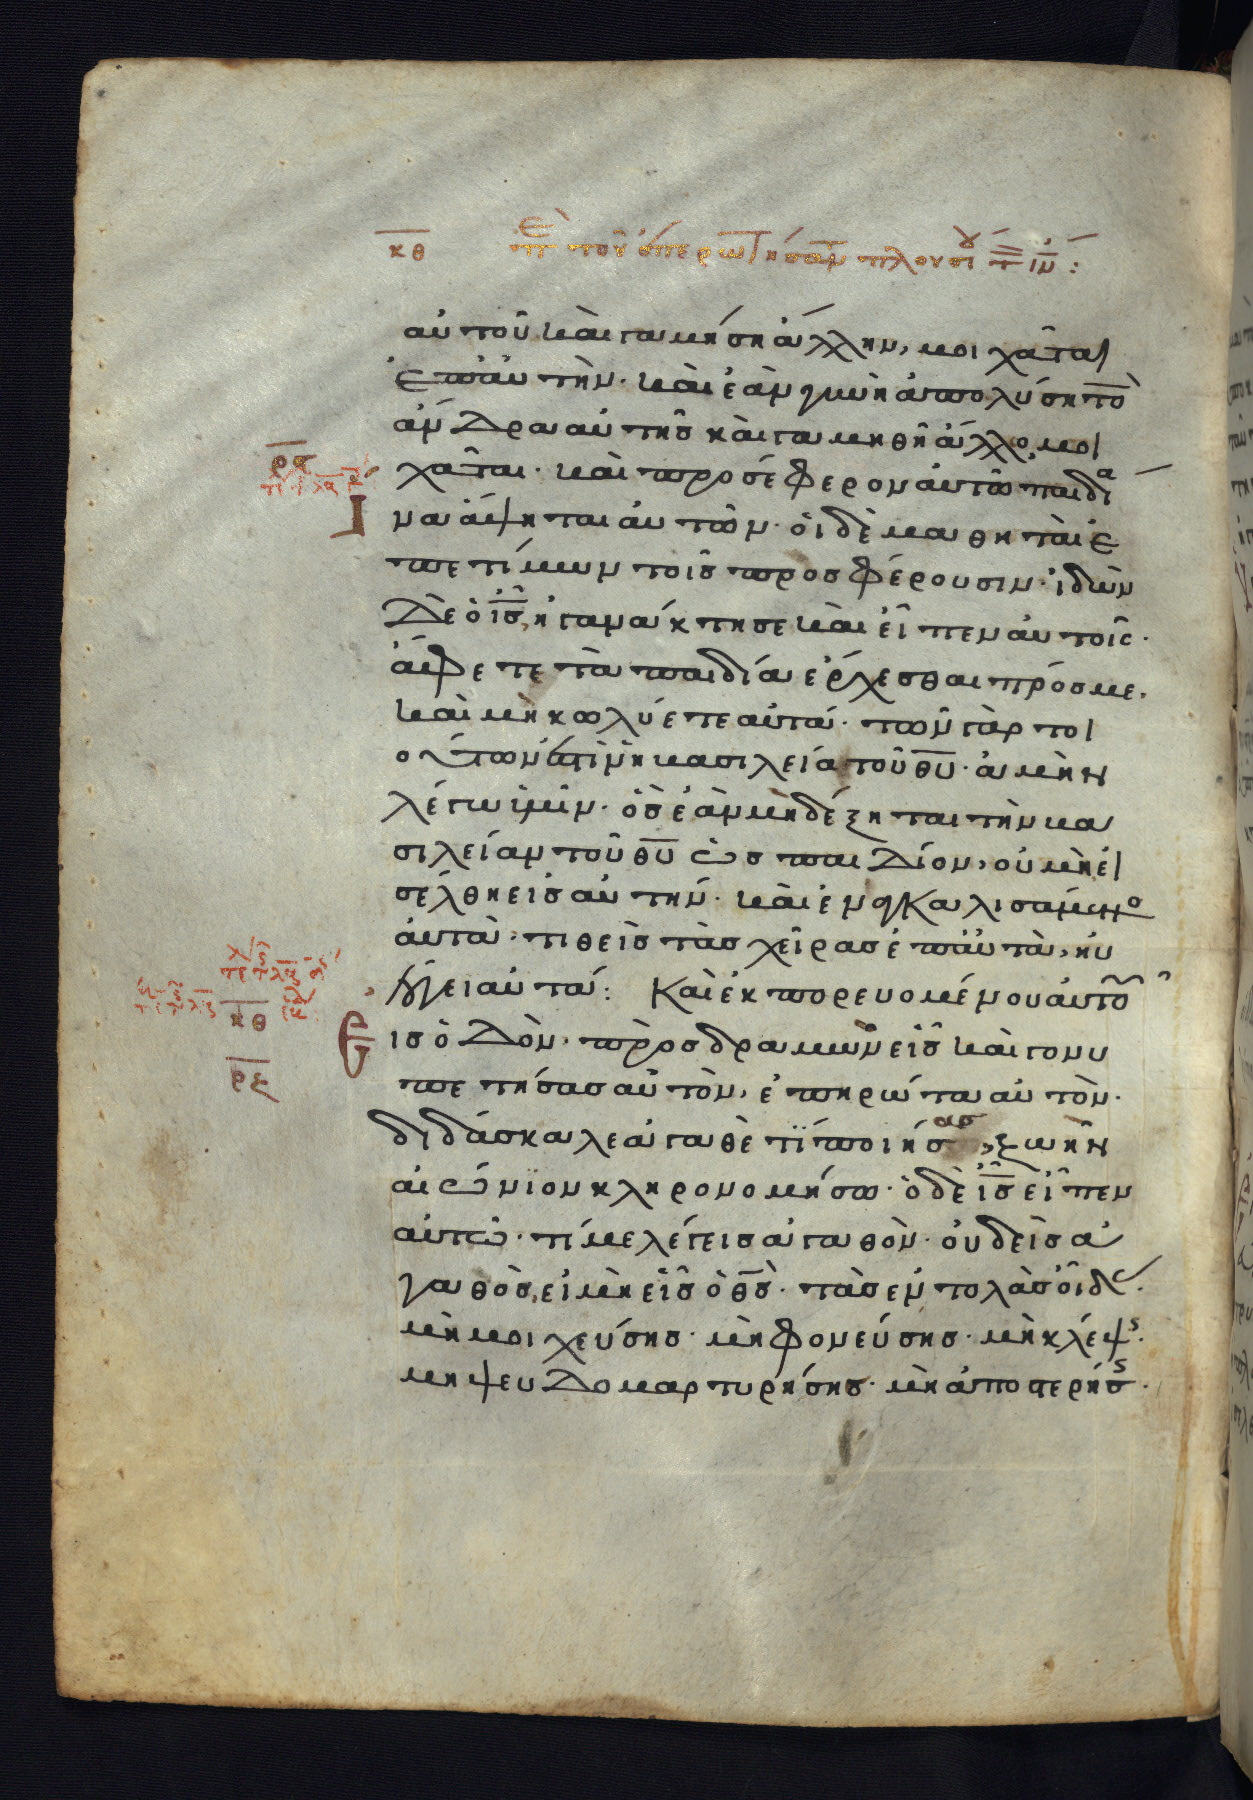 κθ περὶ τοῦ ἐπερωτήσαντ πλουσίου τ ιν :
αὐτοῦ καὶ γαμήση ἄλλην, μοιχᾶται
ἐπ αὐτὴν· καὶ ἐὰν γυνὴ ἀπολύση τὸ
ἄνδρα αὐτῆς καὶ γαμηθῆ ἄλλο, μοι
χᾶται· καὶ προσέφερον αὐτῶ παιδί
να ἅψηται αὐτῶν· οἱ δὲ μαθηταὶ ἐ
πετίμων τοῖς προσφέρουσιν· ἰδὼν
δὲ ὁ ι̅ς̅, ἠγανάκτησε καὶ εἶπεν αὐτοῖς·
ἄφετε τὰ παιδία ἔρχεσθαι πρός με,
καὶ μὴ κωλύετε αὐτά· τῶν γὰρ τοι
ούτων ἐστὶν ἡ βασιλεία τοῦ θ̅υ̅· ἀμὴν
λέγω ὑμῖν· ὃς ἐὰν μὴ δέξηται τὴν βα
σιλείαν τοῦ θ̅υ̅ ὡς παιδίον, οὐ μὴ εἰ
σέλθη εἰς αὐτήν· καὶ ἐναγκαλισάμενο
αὐτὰ· τιθεὶς τὰς χεῖρας ἐπ αὐτὰ, ηὐ
λόγει αὐτά: Καὶ ἐκπορευομένου αὐτοῦ
κθ
Εἰς ὁδὸν· προσδραμὼν εἷς καὶ γονυ
ρξ
πετήσας αὐτὸν, ἐπηρώτα αὐτὸν·
διδάσκαλε ἀγαθὲ τί ποιήσας, ζωὴν
αἰώνιον κληρονομήσω· ὁ δὲ ι̅ς̅ εἶπεν
αὐτῶ· τί με λέγεις ἀγαθὸν· οὐδεὶς ἀ
γαθὸς, εἰ μὴ εἷς ὁ θ̅ς̅· τὰς ἐντολὰς οἶδας·
μὴ μοιχεύσης· μὴ φονεύσης· μὴ κλέψς·
μὴ ψευδομαρτυρήσης· μὴ ἀποστερήσς·